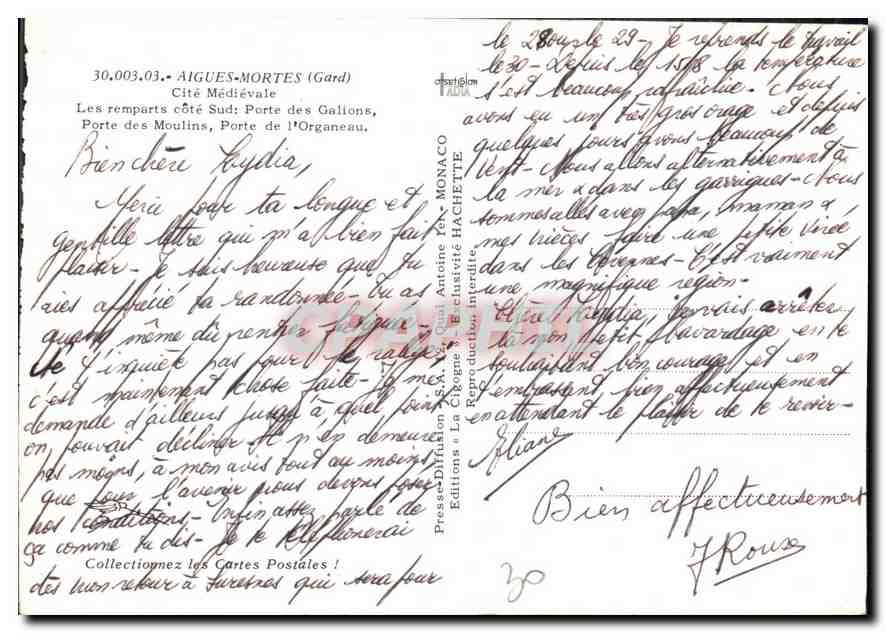 30.003.03.- AIGUES-MORTES (Gard)
Cité Médiévale
Les remparts côté Sud: Porte des Galions,
Porte des Moulins, Porte de l'Organeau.
Bien chère Lydia,
Merci pour ta longue et
gentille lettre qui m'a bien fait
plaisir - Je suis heureuse que tu
aies apprécié ta randonnée - tu as
quand même dû rentrer fatiguée!
Ne t'inquiète pas pour le rallye,
c'est maintenant chose faite - Je me
demande d'ailleurs jusqu'à quel point
on pouvait décliner - Il n'en demeure
pas moins, à mon avis tout au moins,
que pour l'avenir nous devons poser
nos conditions - Enfin assez parlé de
ça comme tu dis - Je te téléphonerai
Collectionnez les Cartes Postales !
dès mon retour à Suresnes qui sera pour
Presse-Diffusion - S.A. Quai Antoine 1er - MONACO
Editions « La Cigogne » - Exclusivité HACHETTE
Reproduction interdite
le 28 ou le 29 - Je reprends le travail
le 30 - Depuis le 15/8 la température
s'est beaucoup rafraîchie - Nous
avons eu un très gros orage et depuis
quelques jours avons beaucoup de
vent - Nous allons alternativement à
la mer & dans les garrigues - Nous
sommes allés avec papa, maman &
mes nièces faire une petite virée
dans les Cévennes - C'est vraiment
une magnifique région -
Chère Lydia, je vais arrêter
là mon petit bavardage en te
souhaitant bon courage et en
t'embrassant bien affectueusement
en attendant le plaisir de te revoir -
Eliane
Bien affectueusement
J Roux
30
CPRPHIL